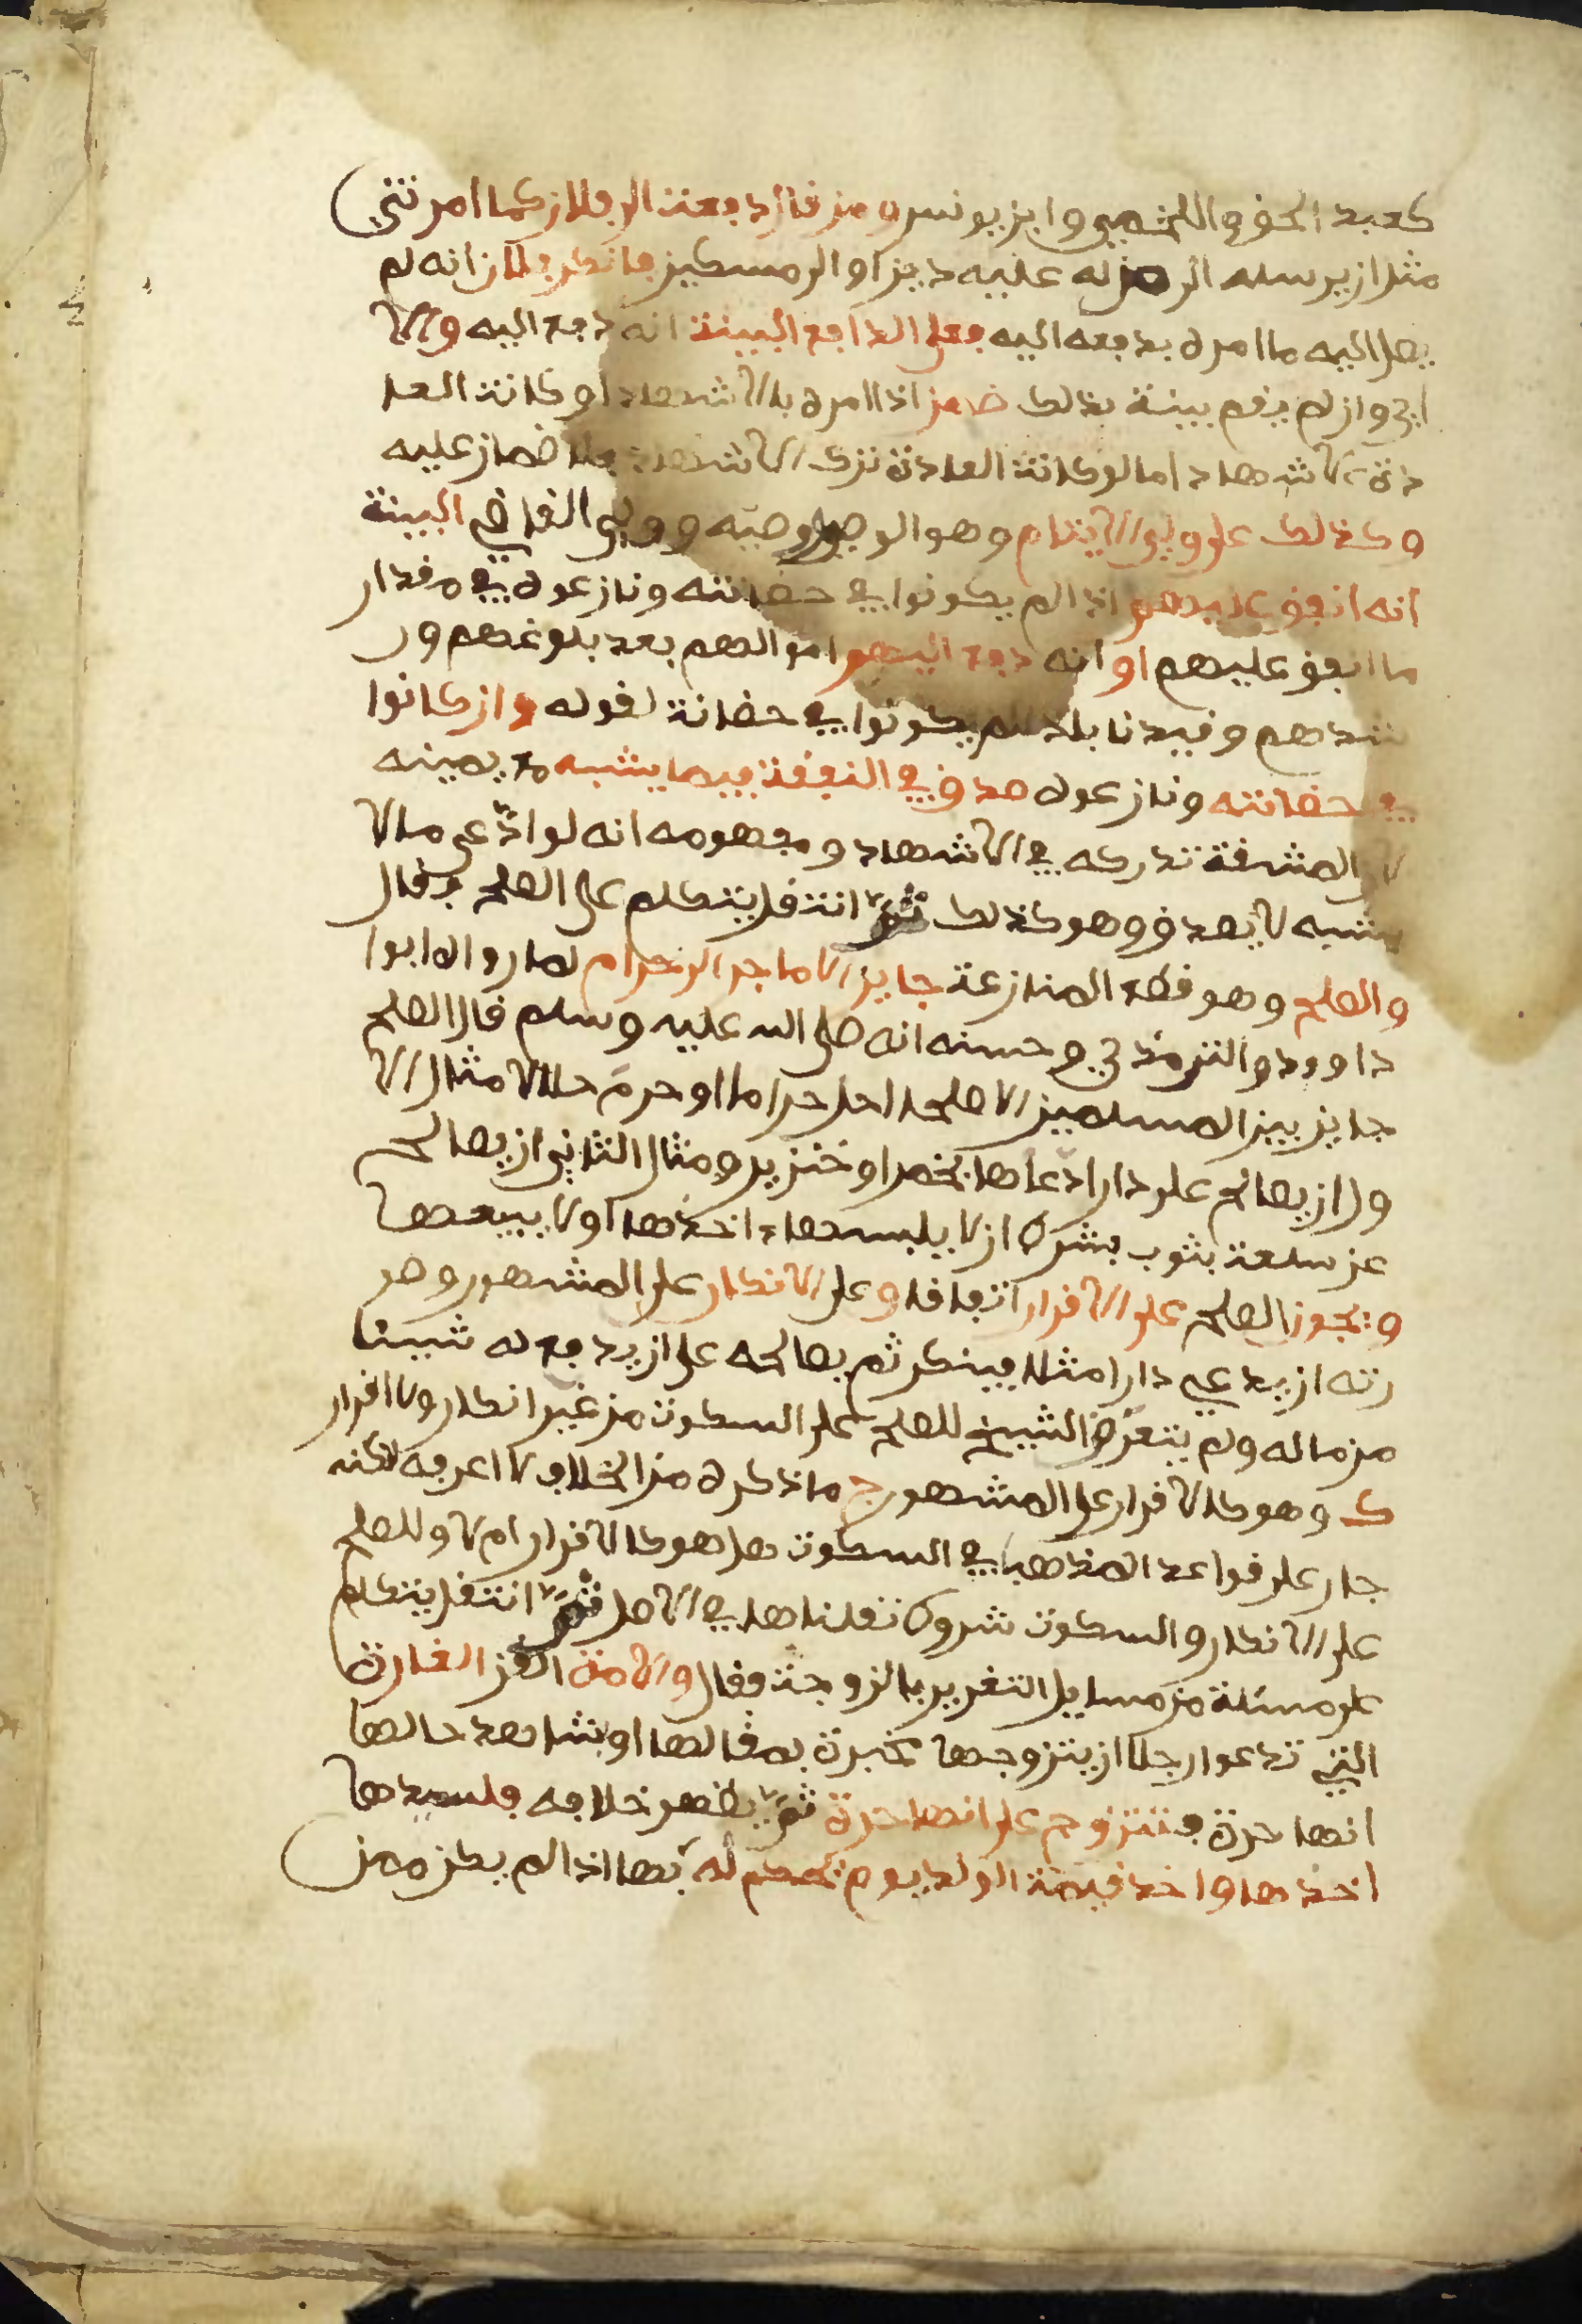 كعبد الحق واللخمي وابن يونس ومن قال دفعت الى فلان كما امرتني
مثل ان يرسله الى من له عليه دين او الى مسكين فانكر فلان انه لم
يصل اليه ما امره بدفعه اليه فعلى الدافع البينة انه دفع اليه والا
اي وان لم يقم بينة بذلك ضمن اذا امره بالاشهاد او كانت العا
دة الاشهاد اما لو كانت العادة ترك الاشهاد فلا ضمان عليه
وكذلك على ولي الايتام وهو الوصي ووصيه وولي القاضي البينة
انه انفق عليهم اذا لم يكونوا في حضانته ونازعوه في مقدار
ما انفق عليهم او انه دفع اليهم اموالهم بعد بلوغهم ور
شدهم وقيدنا باذا لم يكونوا في حضانة لقوله وان كانوا
في حضانته ونازعوه صدق في النفقة فيما يشبه مع يمينه
لان المشقة تدركه في الاشهاد ومفهومه انه لو ادّعى ما لا
يشبه لا يصدق وهو كذلك ثمّ انتقل يتكلم على الصلح فقال
والصلح وهو قطع المنازعة جايز الا ما جر الى حرام لما رواه ابوا
داوود والترمذي وحسنه انه صلى الله عليه وسلم قال الصلح
جايز بين المسلمين الا صلحا احل حراما او حرم حلالا مثال الا
ول ان يصالح على دار ادّعاها بخمر او خنزير ومثال الثاني ان يصالح
عن سلعة بثوب بشرط ان لا يلبسها اخذها او لا يبيعها
ويجوز الصلح على الاقرار اتفاقا وعلى الانكار على المشهور وصو
رته ان يدعي دارا مثلا فينكر ثم يصالحه على ان يدفع له شيئا
من ماله ولم يتعرّض الشيخ للصلح على السكوت من غير انكار ولا اقرار
ك وهو كالاقرار على المشهور ج ما ذكره من الخلاف لا اعرفه لكنه
جار على قواعد المذهب في السكوت هل هو كالاقرار ام لا وللصلح
على الانكار والسكوت شروط نقلناها في الاصل ثمّ انتقل يتكلم
على مسئلة من مسايل التغرير بالزوجة فقال والامة القن الغارة
التي تدعوا رجلا ان يتزوجها مخبرة بمقالها او بشاهد حالها
انها حرة فتتزوج على انها حرة ثمّ يظهر خلافه فلسيدها
اخذها واخذ قيمة الولد يوم يحكم له بها اذا لم يكن ممن